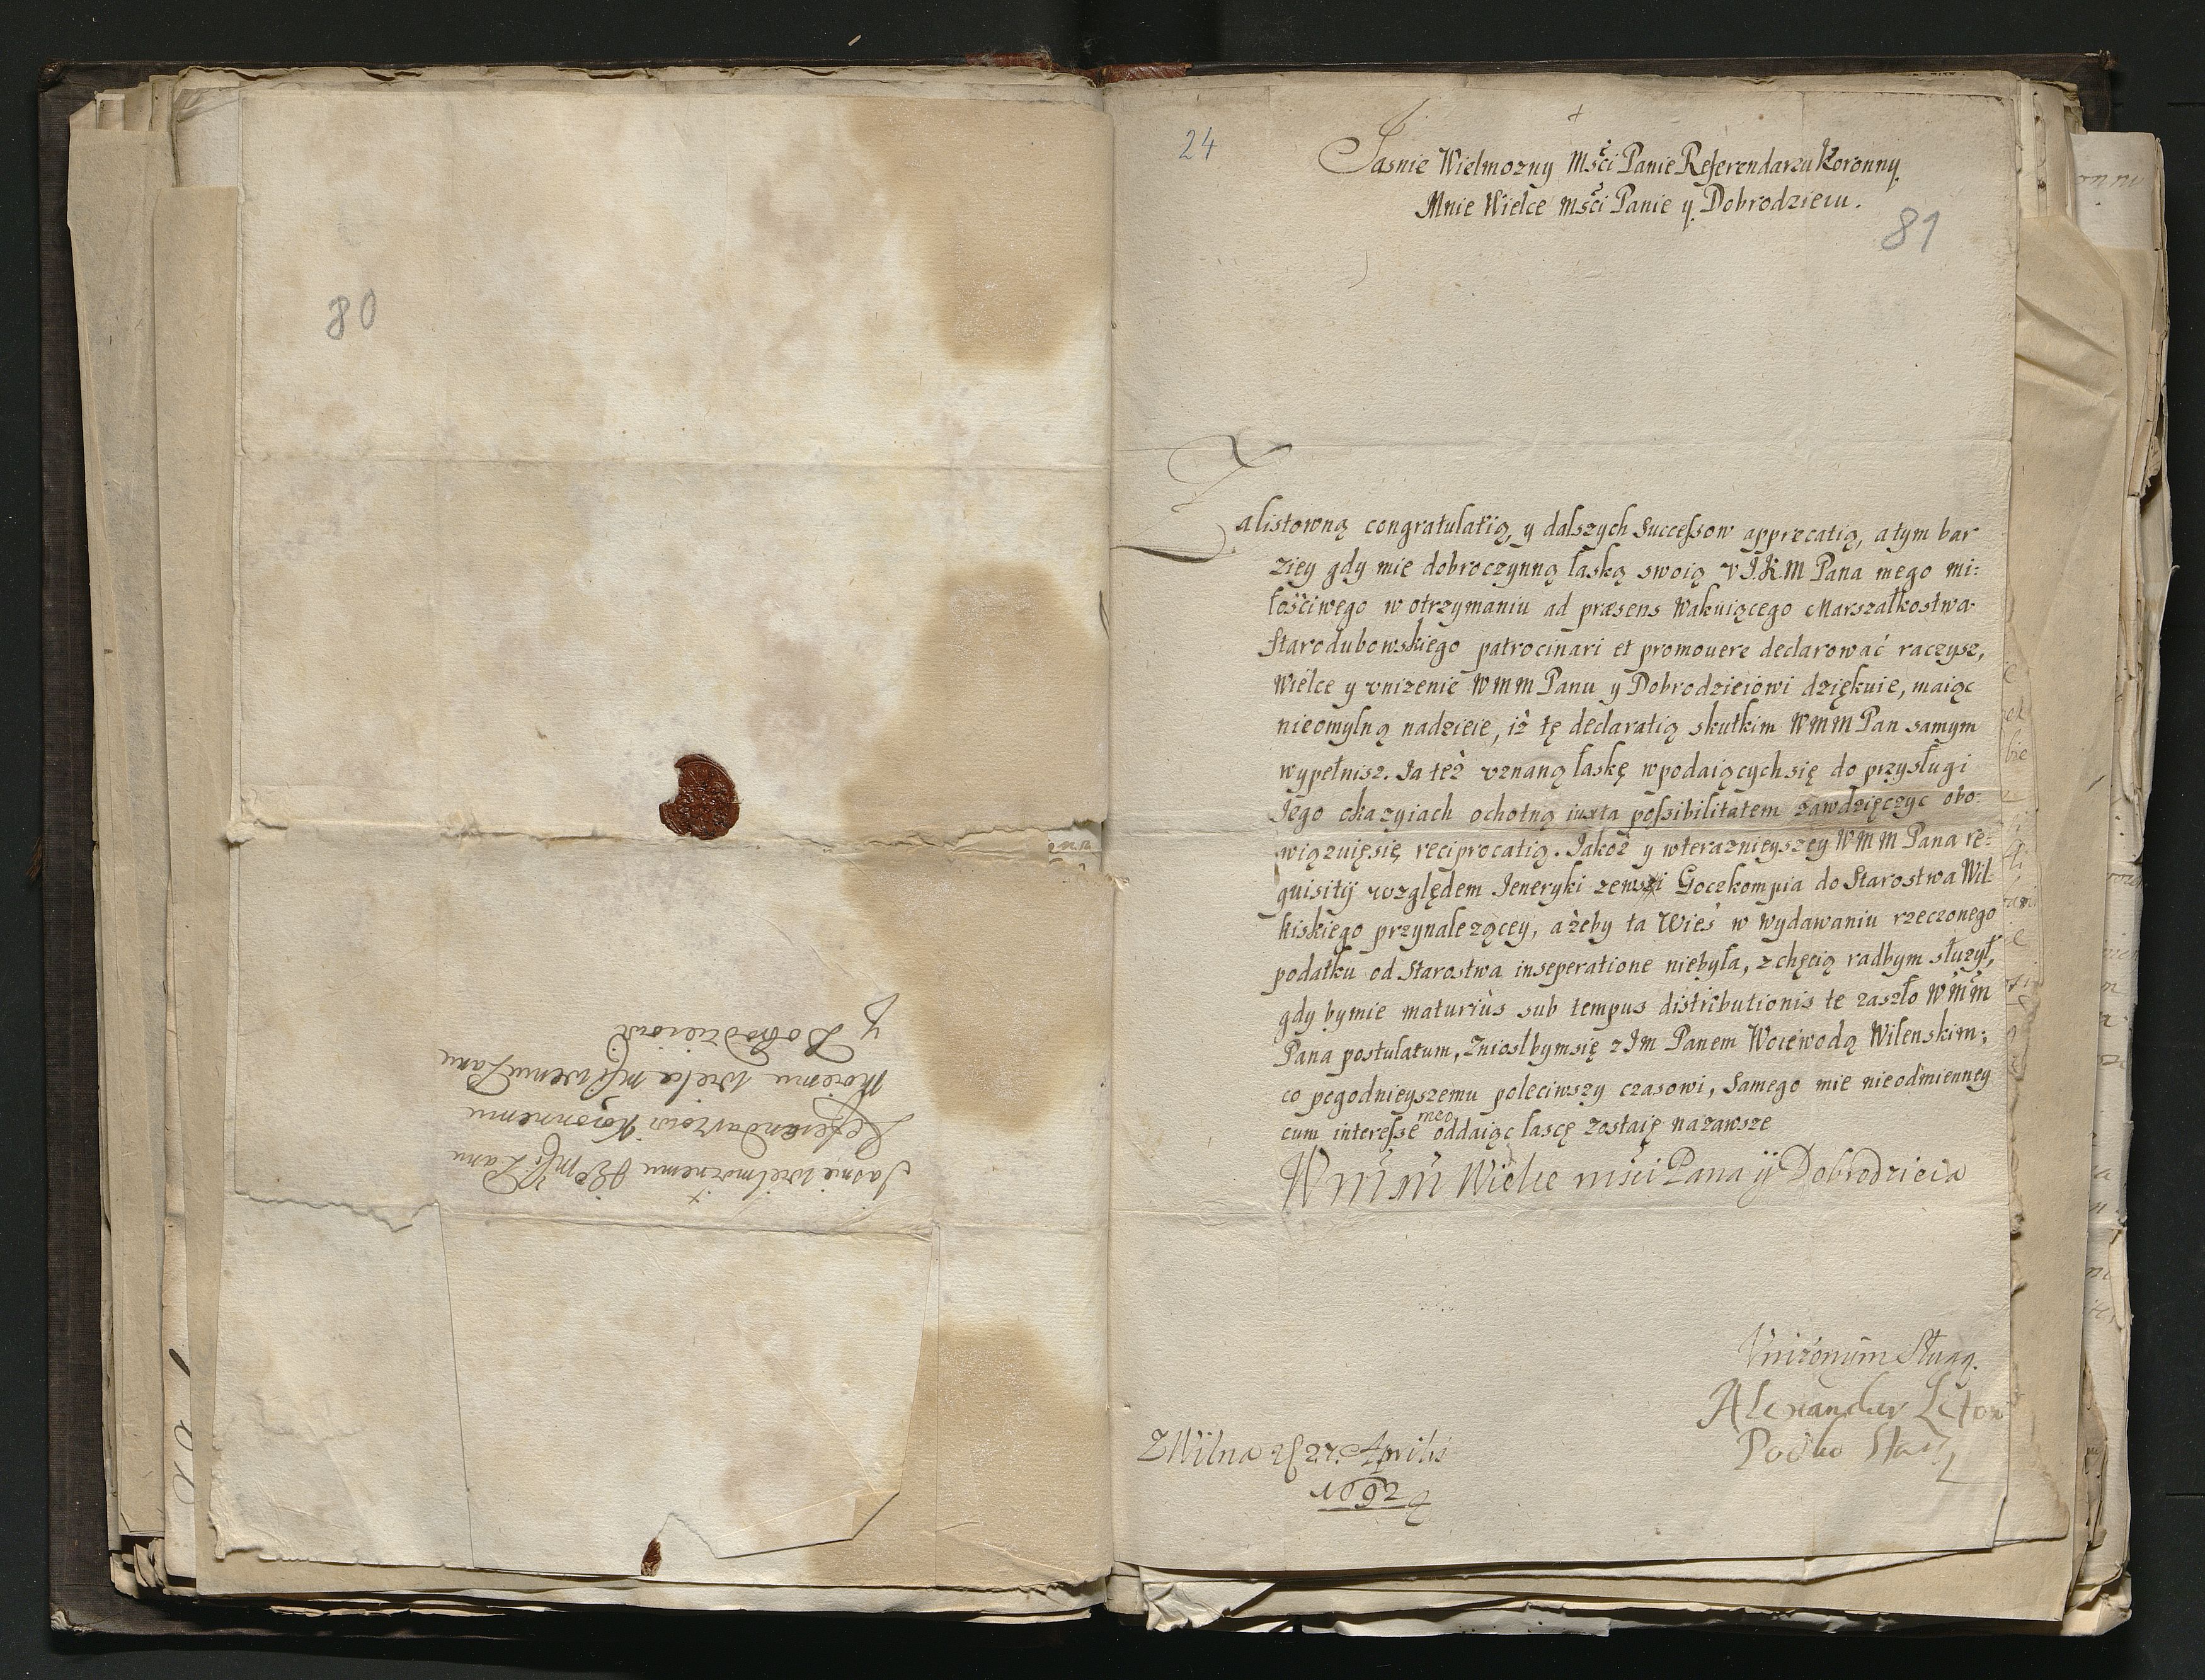 80
Jasnie wielmoznemu Je° Mśi Panu
Referendarzowi Koronnemu
Moiemu wielce Mśiwemu Panu
y
Dobrodzieiowi
24
Jasnie Wielmozny Mści Panie Referendarzu Koronny
Mnie Wielce Mści Panie y Dobrodzieiu.
81
Za listowną congratulatią, y dalszych Successow apprecatią, a tym bar
ziey gdy mie dobroczynną łaską swoią v J.K.M Pana mego mi:
łościwego w otrzymaniu ad præsens Wakuiącego Marszałkostwa
Starodubowskiego patrocinari et promouere declarować raczysz,
Wielce y vnizenie WMM Panu y Dobrodzieiowi dziękuie, maiąc
nieomylną nadzieie, iż tę declaratią skutkim WMM Pan samym
wypełnisz. Ja też vznaną łaskę w podaiących się do przysługi
Jego okazyiach ochotną iuxta possibilitatem zawdzięczyc obo:
wiązuię się reciprocatią. Jakoż y w terazniejszey WMM Pana re:
quisitij względem Jeneryki ze wsi Goczkompia do Starostwa Wil
kiskiego przynalezącey, ażeby ta Wieś w wydawaniu rzeczonego
podatku od Starostwa in seperatione niebyła, z chęcią radbym służył,
gdyby mie maturiùs sub tempus distributionis te zaszło WMM
Pana postulatum, zniosłbym się z Jm Panem Woiewodą Wilenskim;
co pogodnieyszemu poleciwszy czasowi, Samego mie nieodmienney
cum interesse meo oddaiąc łascę zostaię na zawsze
WMM Wielce mści Pana ÿ Dobrodzieia
Vniżonym Sługą
Alexander
Z Wilna 27. Aprilis
1692